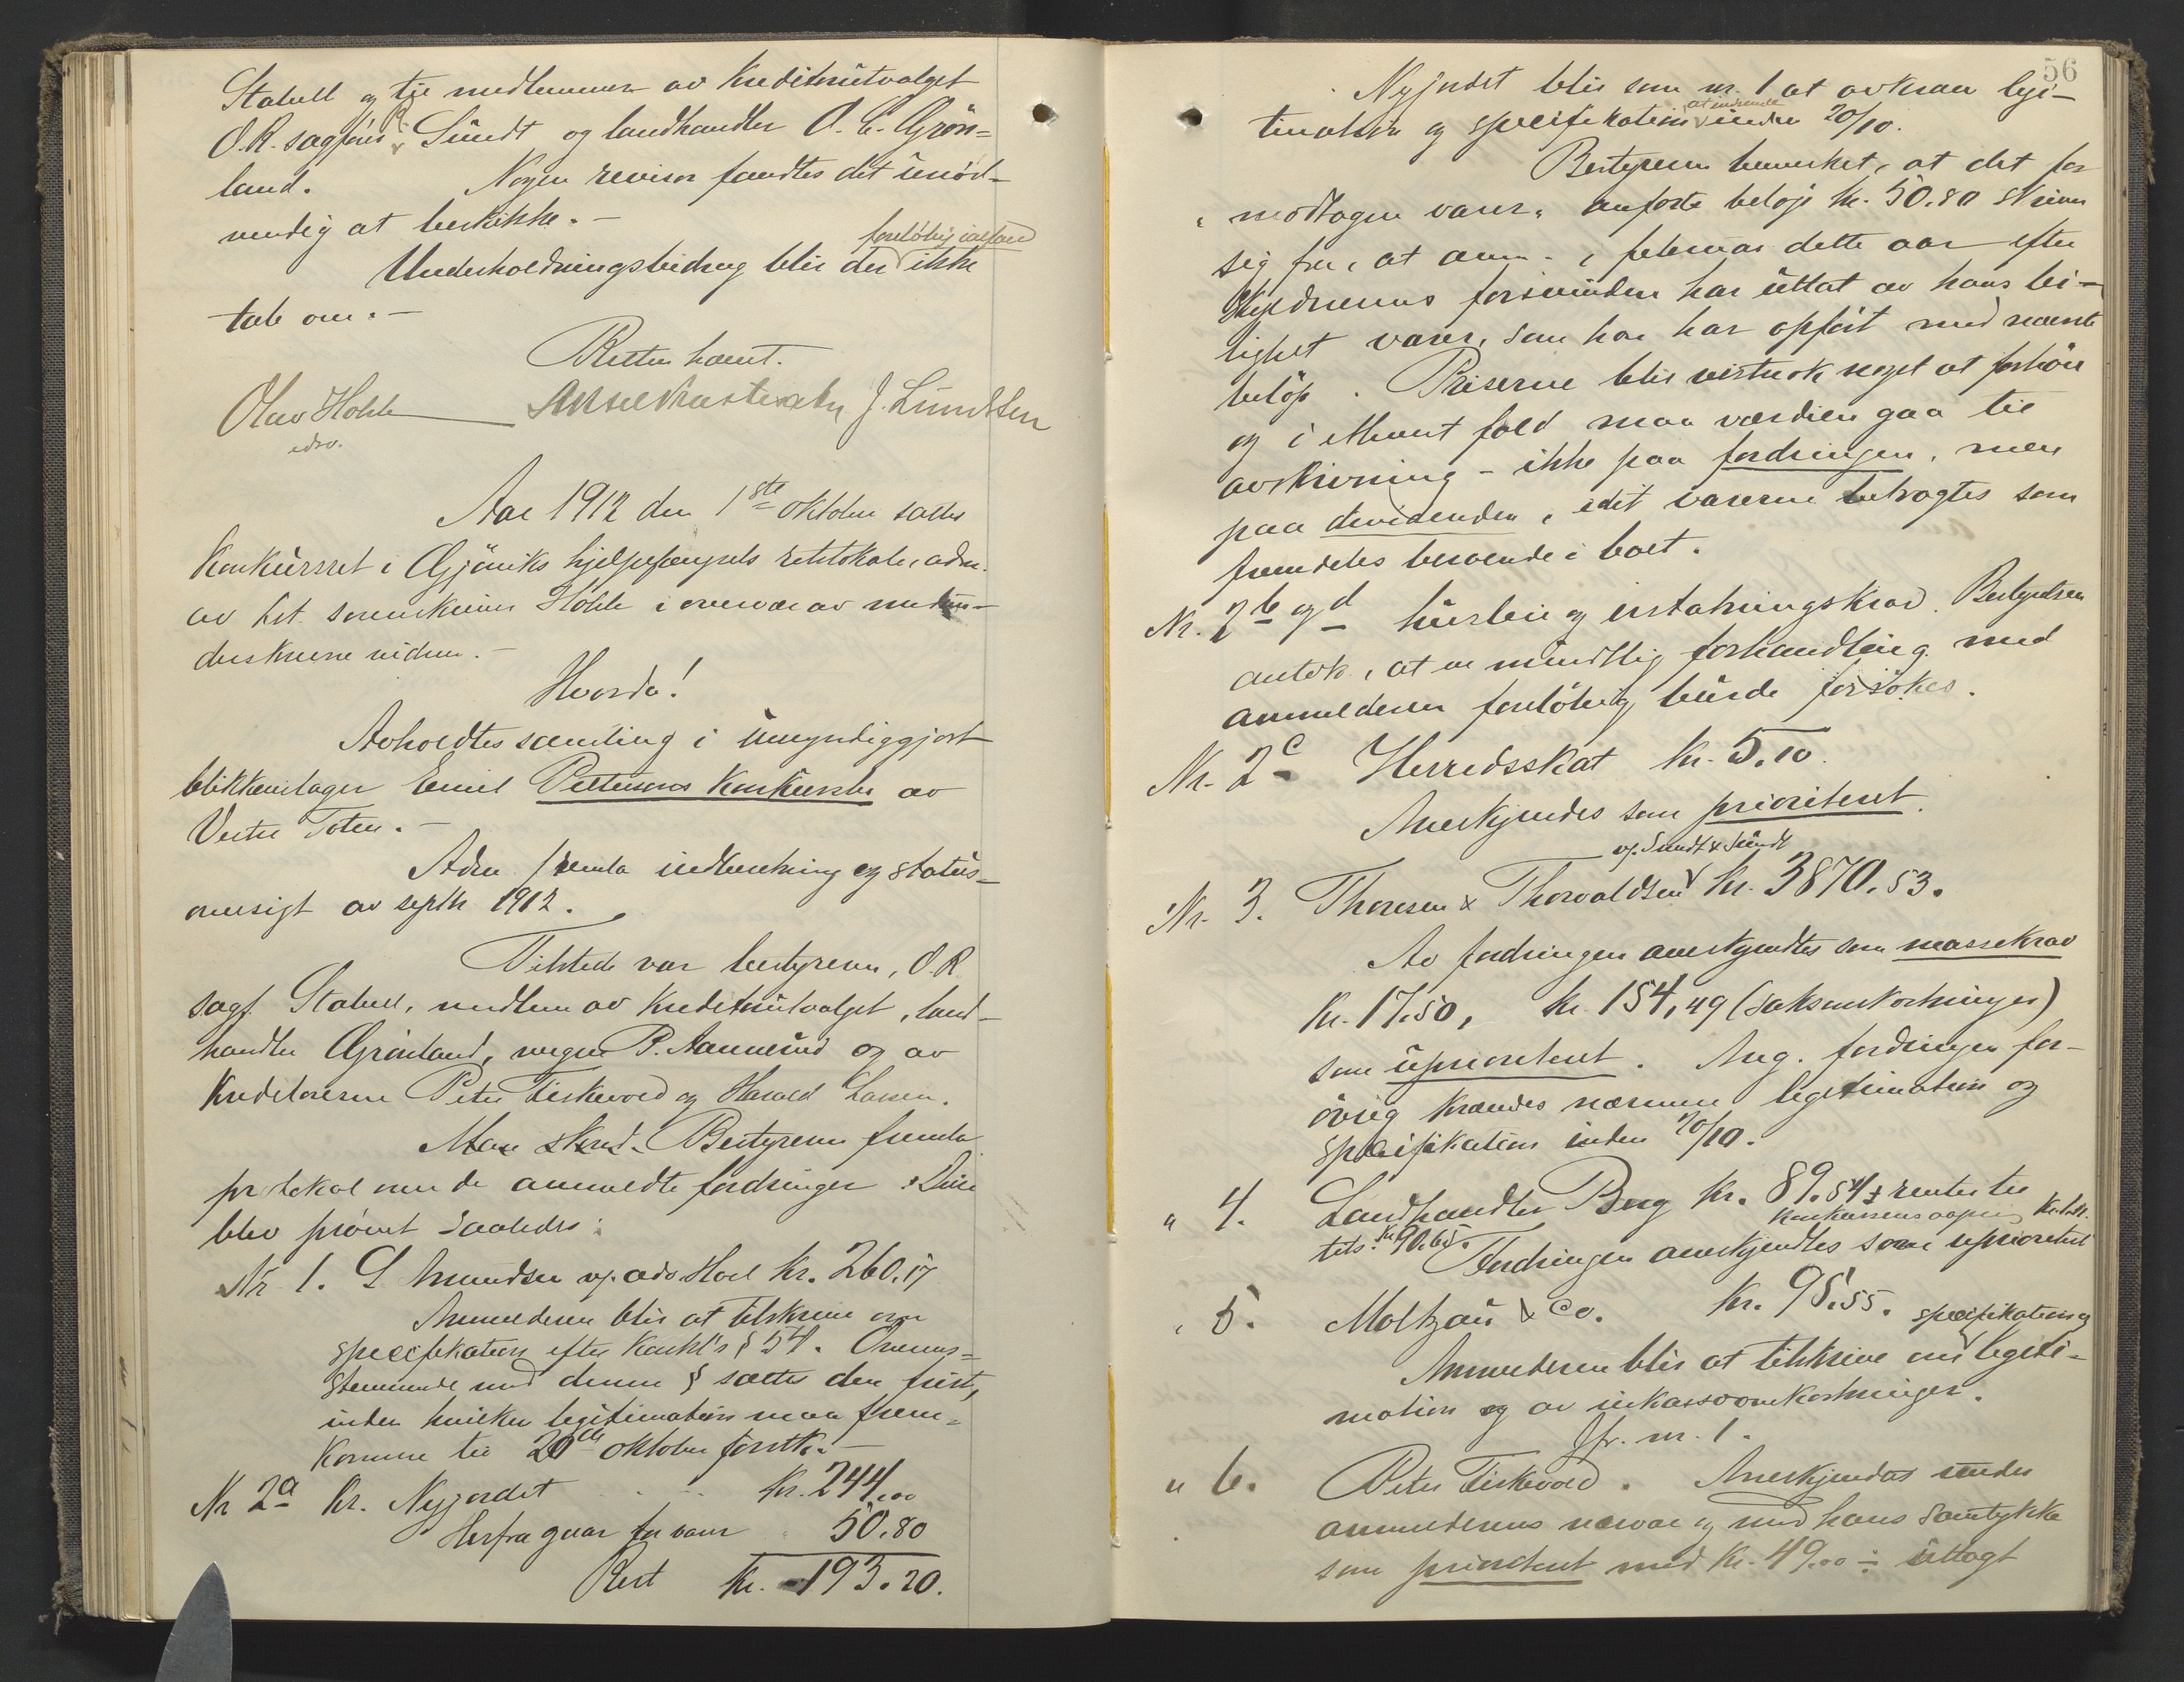 Stabell og til medlemmer av kreditorutvalget
O.R. sagfører P. Sundt og landhandler O. C. Grön=
land. Nogen revisor fandtes det unöd-
vendig at beskikke. -
foreløbig ialfald
Underholdningsbidrag blir der ikke
tale om. -
Retten hævet.
Olav Hohle J. Lundsten
edsv.
Aar 1912 den 1ste oktober sattes
Konkursret i Gjöviks hjelpefængsels retslokale, adm.
av kst. sorenskriver Hohle i overvær av medun-
derskrevne vidner. -
Hvorda!
Avholdtes samling i umyndiggjort
blikkenslager Emil Pettersens konkursbo av
Vestre Toten. -
Adm fremla indberetning og status-
oversigt av septbr 1912.
Tilstede var bestyreren, O.R.
sagf. Stabell, medlem av kreditorutvalget, land-
handler Grönland, P. Aannerud og av
kreditorerne Peter Fiskevold og Harald Larsen.
Man skred. Bestyreren fremla
protokol over de anmeldte fordringer. Disse
blev prövet saaledes:
Nr 1. L Amundsen v. adv Hoel kr. 260.17
Anmelderen blir at tilskrive om
specifikation efter konkl's § 54. Overens=
stemmende med denne § sættes den frist,
inden hvilken legitimation maa frem=
komme til 20de oktober førstk. -
Nr 2a Kr. Nyjordet kr. 244,00
Herfra gaar for varer " 50.80
Rest kr. 193.20.
56
Nyjordet blir som nr. 1 at avkræve legi-
at indsende
timation og specifikation inden 20/10.
Bestyreren bemerket, at det for
"modtagne varer" anførte beløp kr. 50.80 skriver
sig fra, at anm. i februar dette aar efter
skyldnerens forsvinden har uttat av hans lei-
lighet varer, som han har opført med nævnte
beløp. Priserne blir vistnok noget at forhöie
og i ethvert fald maa værdien gaa til
avskrivning - ikke paa fordringen, men
paa dividenden, idet varerne betragtes som
fremdeles beroende i boet.
Nr. 2b og d husleie og erstatningskrav. Bestyrelsen
antok, at en mundtlig forhandling med
anmelderen foreløbig burde forsökes.
Nr. 2c Herredsskat kr. 5.10.
Anerkjendes som prioritert.
v. Sundt & Sundt
Nr. 3. Thoresen & Thorvaldsen kr. 3870.53.
Av fordringen anerkjendtes som massekrav
kr. 17.50, kr. 154,49 (saksomkostninger)
som uprioritert. Ang. fordringen for-
övrig kræves nærmere legitimation og
specifikation inden 20/10.
" 4. Landhandler Berg kr. 89.54 + renter til
konkursens aapning
tils. kr 90.65. Fordringen anerkjendtes som uprioritert
" 5. Moltzau & Co. kr. 95.55.
specifikation og
Anmelderen blir at tilskrive om legiti=
mation og av inkassoomkostninger.
Jfr. nr. 1.
" 6. Peter Fiskevold. Anerkjendas under
anmelderens nærvær og med hans samtykke
som prioritert med kr. 49.00 ÷ uttagt